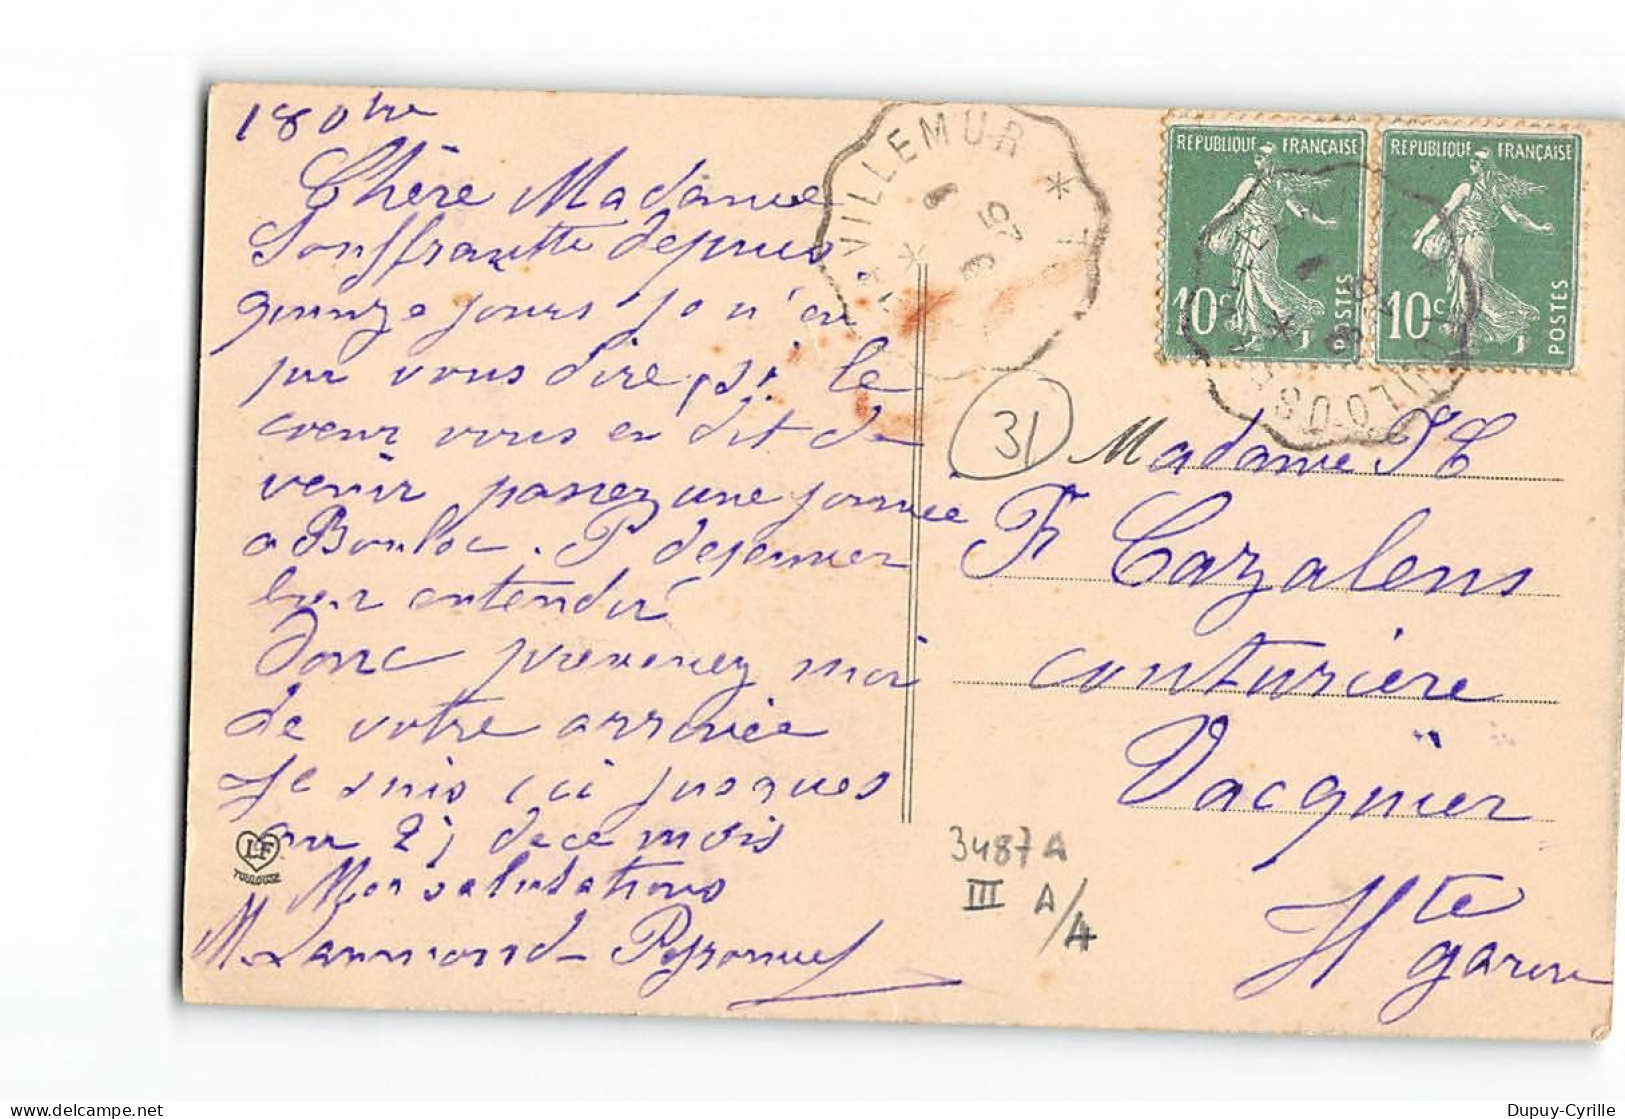 18 8bre
Chère Madame
Souffrantte depuis
quinze jours je n'ai
pu vous dire, si le
cœur vous en dit de
venir passez une journée
a Bouloc. P dejeuner
bien entendu
Donc prevenez moi
de votre arrivée
Je suis ici jusques
au 25 de ce mois
Mes salutations
LF
TOULOUSE
VILLEMUR
RÉPUBLIQUE FRANÇAISE
10c
POSTES
RÉPUBLIQUE FRANÇAISE
10c
POSTES
31
Madame
F Cazalens
couturière
Vacquier
Hte
garonne
3487A
III A/4
Dupuy-Cyrille